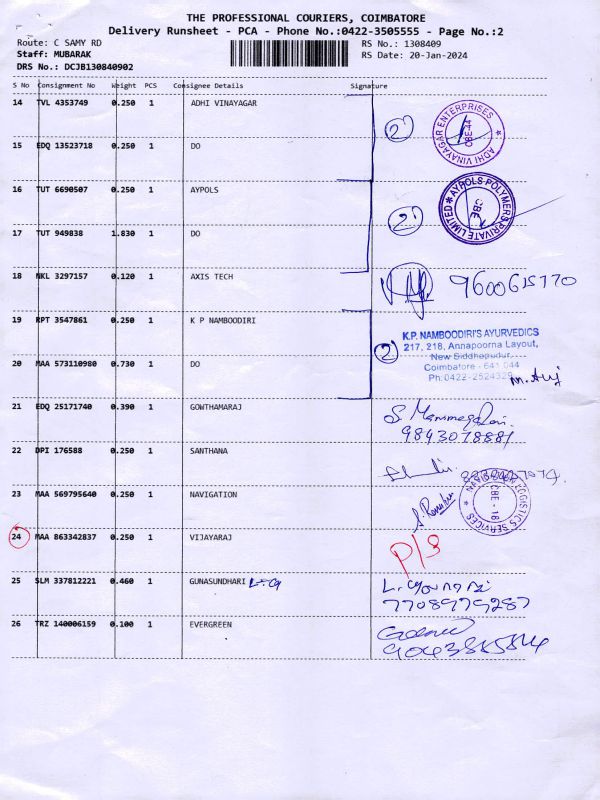 THE PROFESSIONAL COURIERS, COIMBATORE
Delivery Runsheet - PCA - Phone No.:0422-3505555 - Page No.:2
Route: C SAMY RD
RS No.: 1308409
Staff: MUBARAK
RS Date: 20-Jan-2024
DRS No.: DCJB130840902
S No Consignment No Weight PCS Consignee Details Signature
14 TVL 4353749 0.250 1 ADHI VINAYAGAR
2
ADHI VINAYAGAR ENTERPRISES * CBE-44
15 EDQ 13523718 0.250 1 DO
16 TUT 6690507 0.250 1 AYPOLS
2
AYPOLS POLYMERS PRIVATE LIMITED * CBE
17 TUT 949838 1.830 1 DO
18 NKL 3297157 0.120 1 AXIS TECH
19 RPT 3547861 0.250 1 K P NAMBOODIRI
2
K.P. NAMBOODIRI'S AYURVEDICS
217, 218, Annapoorna Layout,
New Siddhapudur,
Coimbatore - 641 044
Ph:0422-2524329
20 MAA 573110980 0.730 1 DO
21 EDQ 25171740 0.390 1 GOWTHAMARAJ
9843078881
22 DPI 176588 0.250 1 SANTHANA
23 MAA 569795640 0.250 1 NAVIGATION
LOGISTICS SERVICES * CBE - 18
24 MAA 863342837 0.250 1 VIJAYARAJ
P/S
25 SLM 337812221 0.460 1 GUNASUNDHARI
7708979287
26 TRZ 140006159 0.100 1 EVERGREEN